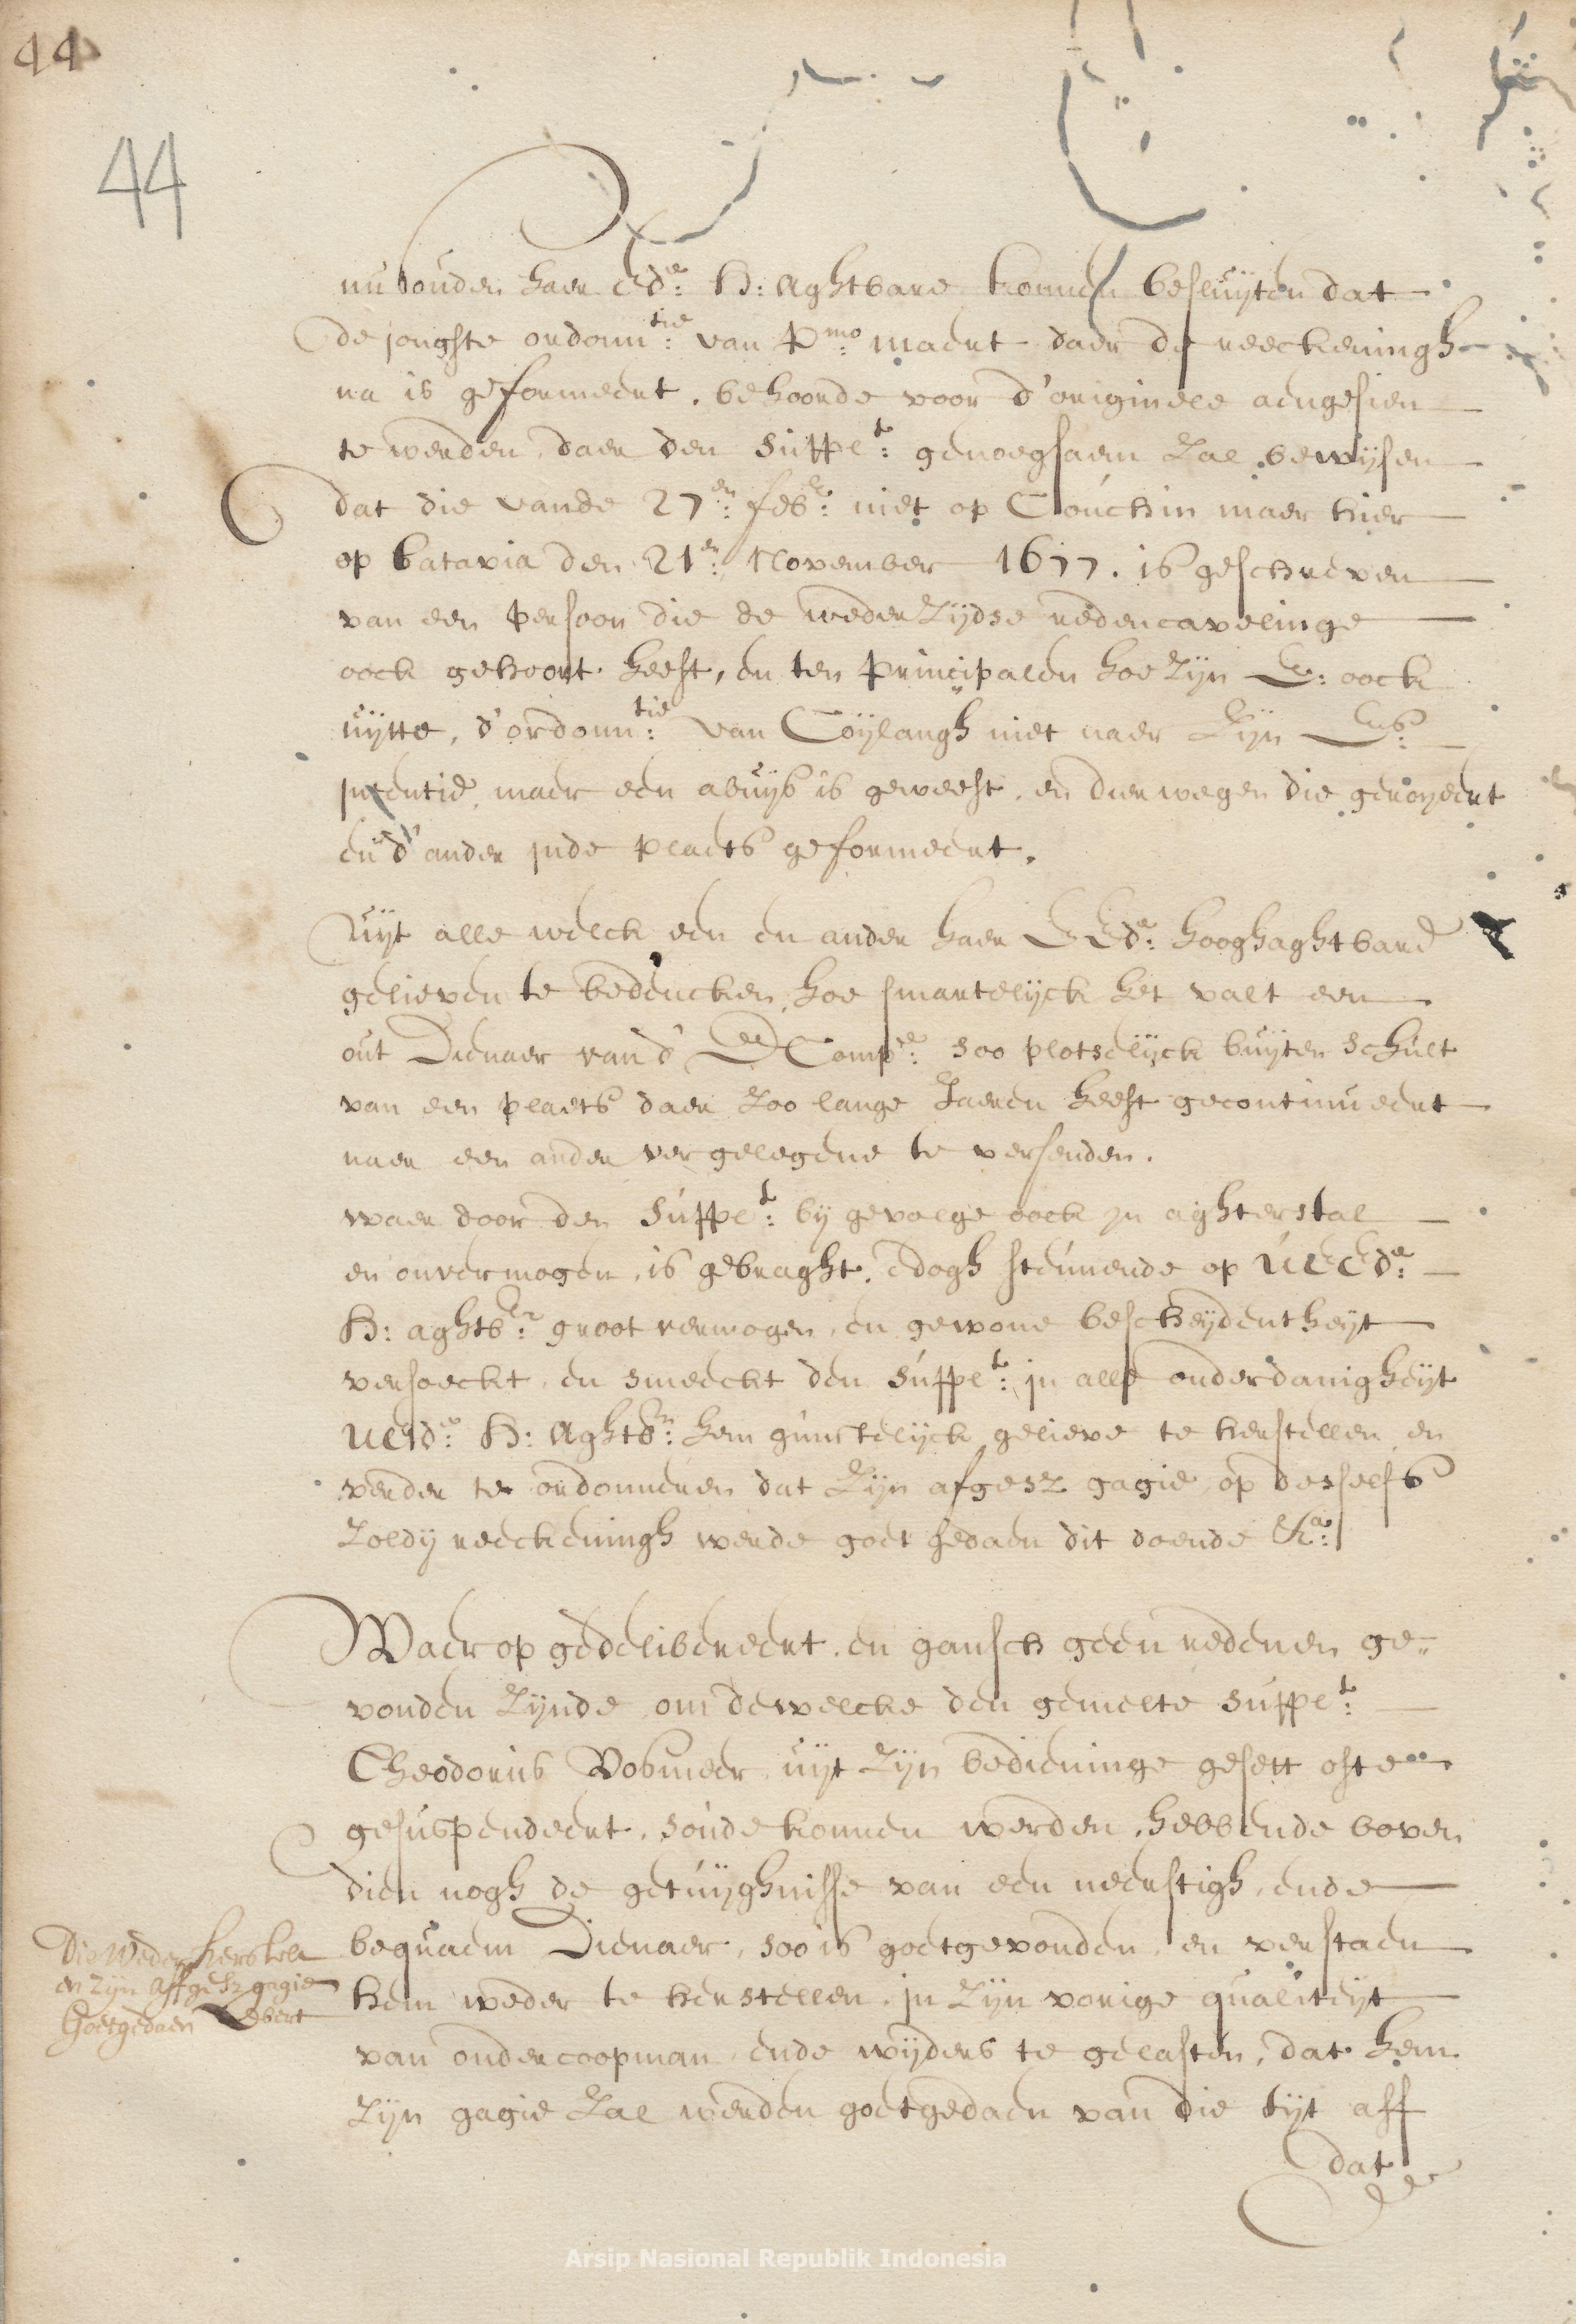 44
44
nu souden haer Ede: H: Aghtbare konnen besluijten dat
de jongste ordonntie: van Pmo: maert daer de reeckeningh
na is geformeert, behoorde voor d'originele aengesien
te werden, daer den Supplt: genoeghsaem zal bewijsen
dat die vande 27en: febr: niet op Couchin maer hier
op batavia den 21en: November 1677. is geschreven
van een persoon die de wederzijdse redencavelinge
oock gehoort heeft, en ten principalen hoe zijn E: oock
uijtte, d'ordonntie: van Coijlangh niet naer zijn Es:
intentie, maer een abuijs is geweest, en dierwegen die geroyeert
en d'ander inde plaets geformeert.
Uijt alle welck een en ander haer EEde: hooghaghtbare
gelieven te bedencken, hoe smartelijck het valt een
out Dienaer van d' Ed Compe: soo plotselijck buijten schult
van een plaets daer zoo lange Jaeren heeft gecontinueert
naer een ander ver gelegene te versenden.
waer door den Supplt: bij gevolge oock in aghterstal
en onvermogen, is gebraght, dogh steunende op UEEde:
H: aghtbr: groot vermogen, en gewone bescheijdentheijt
versoeckt, en smeeckt den Supplt: in alle onderdanigheijt
UEEd: H: Aghtbr: hem gunstelijck gelieve te herstellen, en
verder te ordonneren dat zijn afgesz gagie op desselfs
Zoldij reeckeningh werde goet gedaen dit doende &a:
Waer op gedelibereert, en gansch geen redenen ge-
vonden zijnde, om dewelcke den gemelte Supplt:
Theodorus Vosmeer, uijt zijn bedieninge gesett ofte
gesuspendeert, soude konnen werden, hebbende boven
dien nogh de getuijghnisse van een neerstigh, ende
bequaem Dienaer, soo is goetgevonden, en verstaen
hem weder te herstellen, in zijn vorige qualiteijt
van ondercoopman, ende wijders te gelasten, dat hem
zijn gagie zal werden goetgedaen van die tijt aff
dat
Die Weder herstelt
en zijn affgesz gagie
Goetgedaen
Arsip Nasional Republik Indonesia